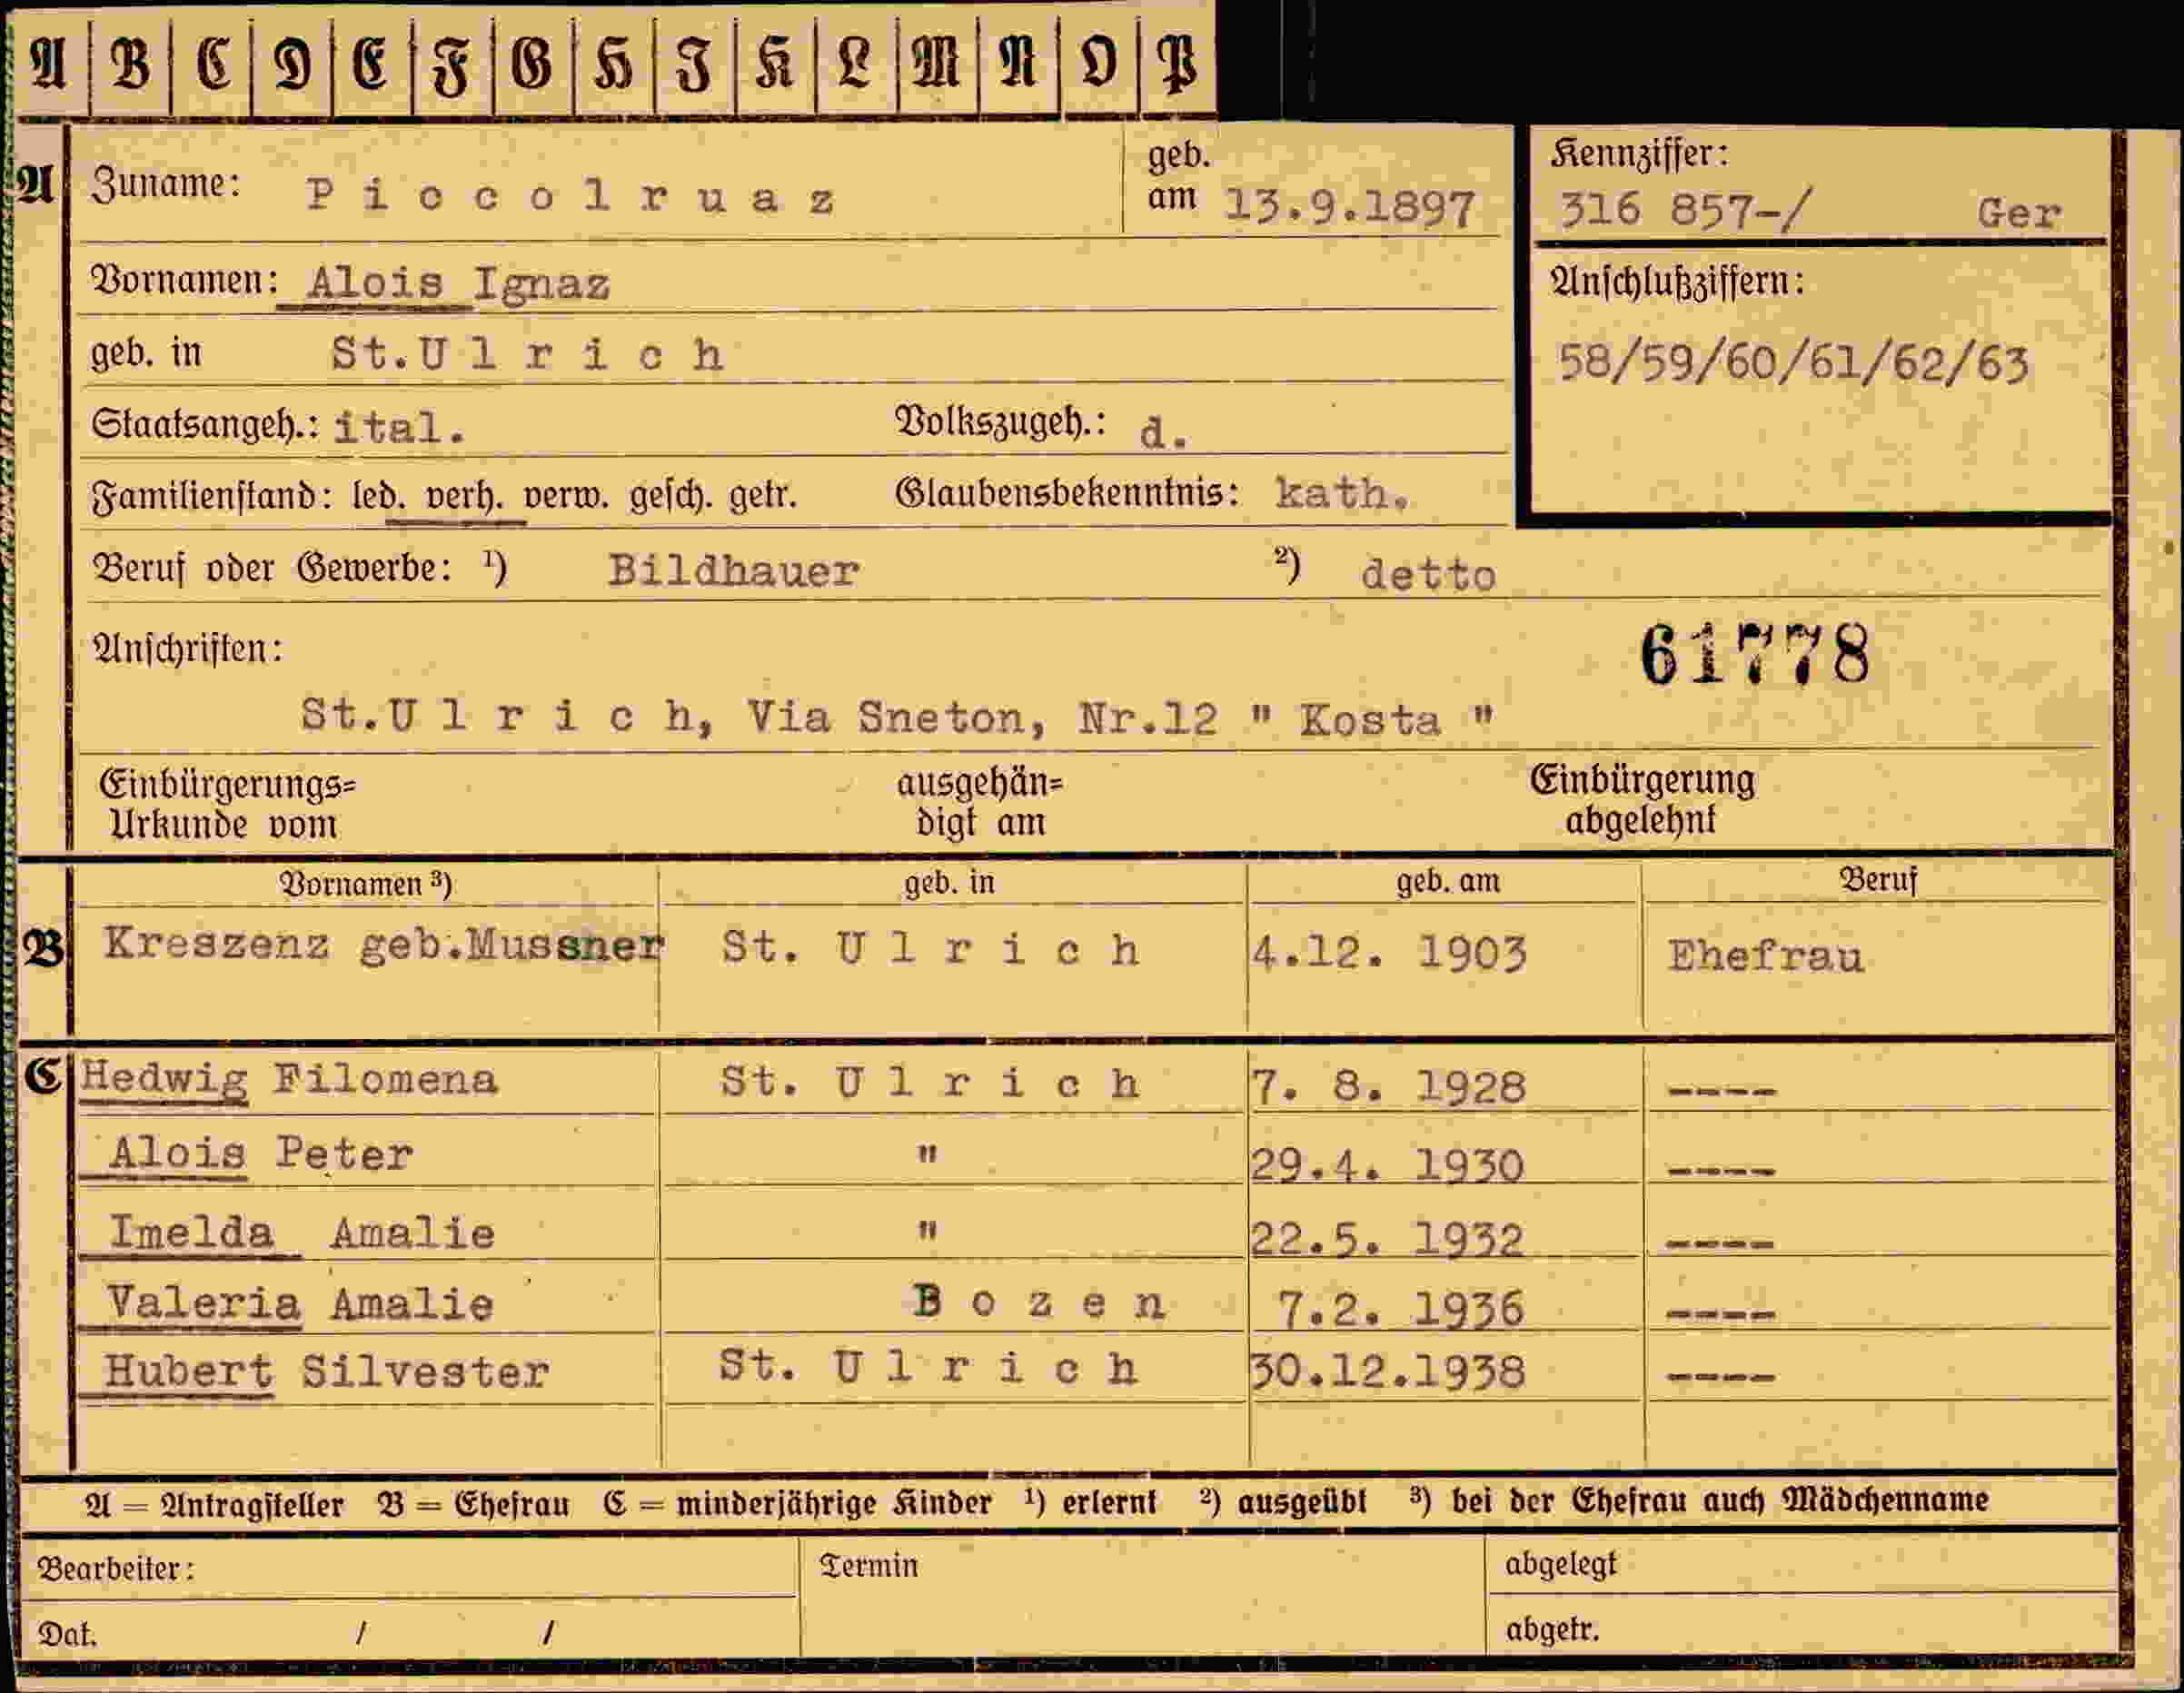 A B C D E F G H I K L M N O P
A Zuname: Piccolruaz geb. am 13.9.1897
Kennziffer:
316 857-/ Ger
Vornamen: Alois Ignaz
Anschlußziffern:
58/59/60/61/62/63
geb. in St.Ulrich
Staatsangeh.: ital. Volkszugeh.: d.
Familienstand: led. verh. verw. gesch. getr. Glaubensbekenntnis: kath.
Beruf oder Gewerbe: ¹) Bildhauer ²) detto
Anschriften:
61778
St.Ulrich, Via Sneton, Nr.12 " Kosta "
Einbürgerungs= ausgehän= Einbürgerung
Urkunde vom digt am abgelehnt
Vornamen ³) geb. in geb. am Beruf
B Kreszenz geb.Mussner St. Ulrich 4.12. 1903 Ehefrau
C Hedwig Filomena St. Ulrich 7. 8. 1928 ----
Alois Peter " 29.4. 1930 ----
Imelda Amalie " 22.5. 1932 ----
Valeria Amalie Bozen 7.2. 1936 ----
Hubert Silvester St. Ulrich 30.12.1938 ----
A = Antragsteller B = Ehefrau C = minderjährige Kinder ¹) erlernt ²) ausgeübt ³) bei der Ehefrau auch Mädchenname
Bearbeiter: Termin abgelegt
Dat. / / abgetr.